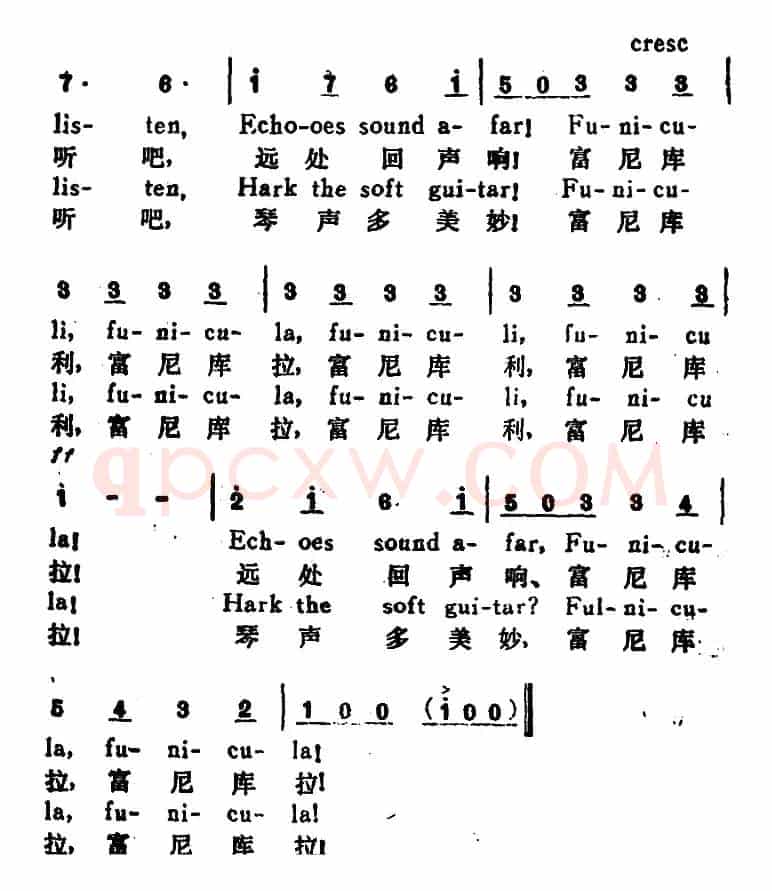 cresc
7· 6· | i 7 6 i | 5 0 3 3 3 |
lis- ten, Echo-oes sound a- far! Fu- ni- cu-
听 吧, 远 处 回 声 响! 富 尼 库
lis- ten, Hark the soft gui-tar! Fu- ni- cu-
听 吧, 琴 声 多 美 妙! 富 尼 库
3 3 3 3 | 3 3 3 3 | 3 3 3 3 |
li, fu- ni- cu- la, fu- ni- cu- li, fu- ni- cu
利, 富 尼 库 拉, 富 尼 库 利, 富 尼 库
li, fu- ni- cu- la, fu- ni- cu- li, fu- ni- cu
利, 富 尼 库 拉, 富 尼 库 利, 富 尼 库
ff
qpcxw.COM
i - - | 2 i 6 i | 5 0 3 3 4 |
la! Ech- oes sound a- far, Fu- ni- cu-
拉! 远 处 回 声 响、 富 尼 库
la! Hark the soft gui-tar? Ful- ni- cu-
拉! 琴 声 多 美 妙, 富 尼 库
5 4 3 2 | 1 0 0 (i 0 0)‖
la, fu- ni- cu- la!
拉, 富 尼 库 拉!
la, fu- ni- cu- la!
拉, 富 尼 库 拉!